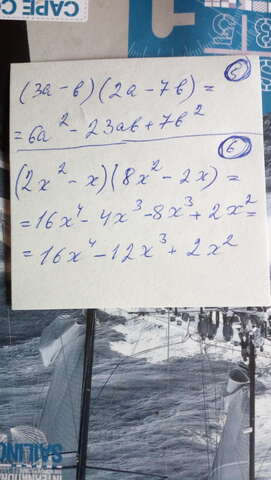 CAPE
5
(3a - b)(2a - 7b) =
= 6a² - 23ab + 7b²
6
(2x² - x)(8x² - 2x) =
= 16x⁴ - 4x³ - 8x³ + 2x² =
= 16x⁴ - 12x³ + 2x²
SAILING